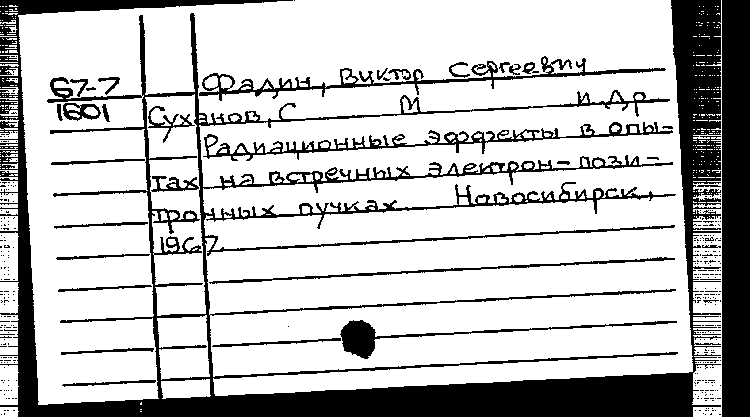 67-7 Фадин, Виктор Сергеевич
1601 Суханов, С М и др
Радиационные эффекты в опы-
тах на встречных электрон-пози-
тронных пучках Новосибирск,
1967